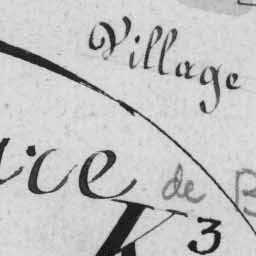 Village
ce de B
K 3